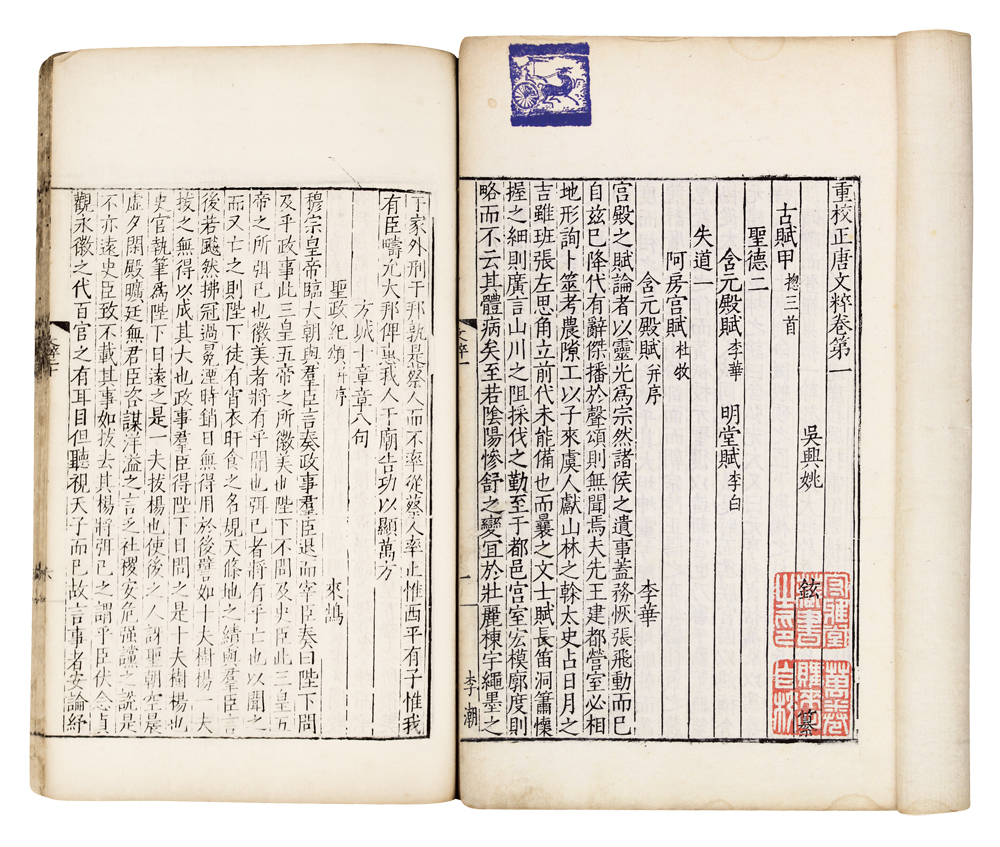 重校正唐文粹卷第一
吳興姚鉉纂
古賦甲 揔三首
聖德二
含元殿賦 李華 明堂賦 李白
失道一
阿房宫賦 杜牧
含元殿賦 并序 李華
宫殿之賦論者以靈光爲宗然諸侯之遺事蓋務恢張飛動而已
自兹已降代有辭傑播於聲頌則無聞焉夫先王建都營室必相
地形詢卜筮考農隙工以子來虞人獻山林之榦太史占日月之
吉雖班張左思角立前代未能備也而曩之文士賦長笛洞簫懷
握之細則廣言山川之阻採伐之勤至于都邑宫室宏模廓度則
略而不云其體病矣至若陰陽慘舒之變宜於壯麗棟宇繩墨之
文粹一
一
李潮
于家外刑于邦孰是蔡人而不率從蔡人率止惟西平有子惟我
有臣疇允大邦俾惠我人于廟告功以顯萬方
方城十章章八句
聖政紀頌 并序 來鴻
穆宗皇帝臨大朝與羣臣言奏政事羣臣退而宰臣奏曰陛下問
及乎政事此三皇五帝之所徽美也陛下不問及史臣此三皇五
帝之所弭已也徽美者將有乎聞也弭已者將有乎亡也以聞之
而又亡之則陛下徒有宵衣旰食之名規天條地之績與羣臣言
後若飈然拂冠過鳧湮時銷日無得用於後譬如十夫樹楊一夫
拔之無得以成其大也政事羣臣得陛下日問之是十夫樹楊也
史官執筆爲陛下日遠之是一夫拔楊也使後之人謂聖朝空晨
虚夕閉殿曠廷無君臣咨謀洋溢之言之社稷安危强讜之諕是
不亦遠史臣致不載其事如拔去其楊將弭已之謂乎臣伏念貞
觀永徽之代百官之有耳目但聽視天子而已故言事者安論紓